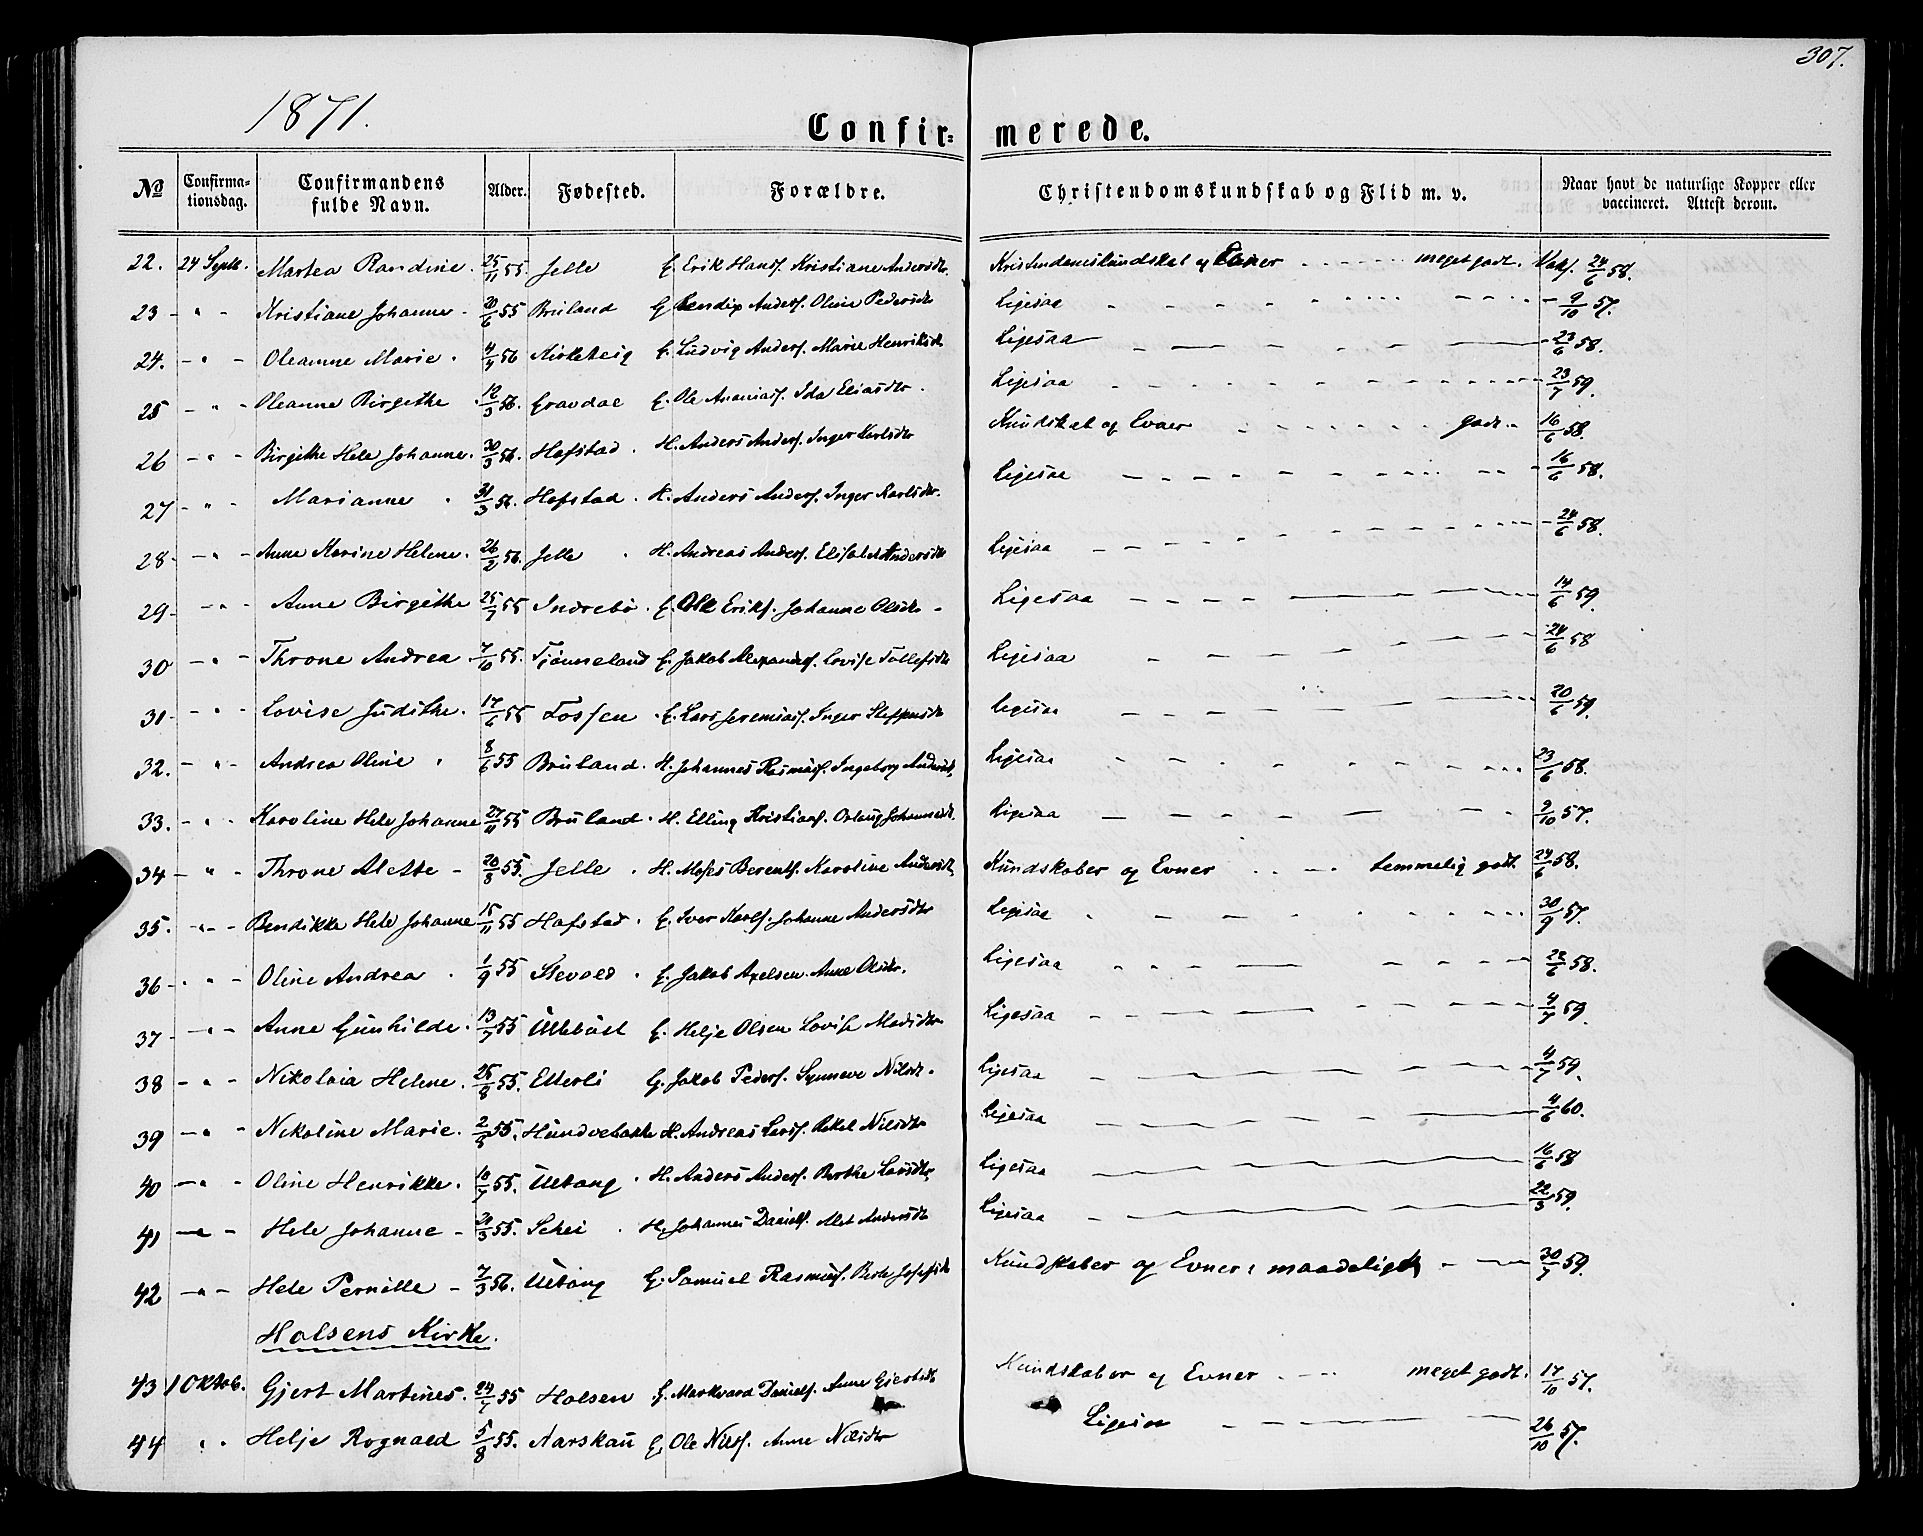 307.
1871.
Confir= merede.
No Confirma-tionsdag. Confirmandens fulde Navn. Alder. Fødested. Forældre. Christendomskundskab og Flid m. v. Naar havt de naturlige Kopper eller vaccineret. Attest derom.
22. 24 Septb. Martea Randine. 25/11 55. Jelle G. Erik Hansf. Kristiane Andersdtr. Kristendomskundskab og Evner - - - meget godt. Vakf. 24/6 58.
23 - " - Kristiane Johanne - 20/6 55 Bruland G Bendix Andersf. Oline Pedersdtr Ligesaa - - - 9/10 57.
24. - " - Oleanne Marie. 4/4 56 Kirketeig G. Ludvig Andersf. Marie Henriksdtr Ligesaa - - - 23/6 58.
25 - " - Oleanne Birgethe 12/3 56. Gravdal G. Ole Ananiasf. Ida Eliasdtr. Ligesaa - - - 23/7 59.
26 - " - Birgithe Hele Johanne. 30/3 56. Hafstad. H. Anders Andersf. Inger Karlsdtr Kundskab og Evner - - - godt. - 16/6 58.
27 - " - Marianne. 31/3 56. Hafstad. H. Anders Andersf. Inger Karlsdtr. Ligesaa - - - 16/6 58.
28 - " - Anne Karine Helene. 26/2 56. Jelle. H. Andreas Andersf. Elisabet Andersdtr Ligesaa - - - 24/6 58.
29 - " - Anne Birgithe 25/7 55 Indrebö. G. Ole Eriksf. Johanne Olsdtr - Ligesaa - - - 14/6 59.
30 - " - Throne Andrea. 7/10 55. Tjönneland G. Jakob Alexandersf. Lovise Tollefsdtr Ligesaa - - - 24/6 58
31 - " - Lovise Judithe. 17/6 55 Fossen. G. Lars Jeremiasf. Inger Steffensdtr Ligesaa - - - 20/6 59.
32. - " - Andrea Oline. 8/6 55 Bruland. H. Johannes Rasmusf. Ingeborg Andersdtr. Ligesaa - - - 23/6 58.
33. - " - Karoline Hele Johanne 27/11 55 Bruland. H. Elling Kristiansf. Johannesdtr. Ligesaa - - - 9/10 57.
34 - " - Throne Alette - 20/8 55. Jelle. H. Moses Berentsf. Karoline Andersdtr. Kundskaber og Evner - - - temmelig godt. 24/6 58.
35. - " - Bendikke Hele Johanne 15/11 55 Hafstad. G. Iver Karlsf. Johanne Andersdtr Ligesaa - - - 30/9 57.
36 - " - Oline Andrea. 1/9 55 G. Jakob Axelsen. Anne Olsdtr. Ligesaa - - - 22/6 58.
37 - " - Anne Gunhilde. 13/7 55 G. Helje Olsen Lovise Madsdtr Ligesaa - - - 4/7 59.
38 - " - Nikolaia Helene. 25/8 55. Elterli G. Jakob Pedersf. Synneve Nilsdtr. Ligesaa - - - 4/7 59.
39 - " - Nikoline Marie. 2/5 55. Hundvebakke H. Andreas Larsf. Rakel Nilsdtr Ligesaa - - - 4/6 60.
40 - " - Oline Henrikke. 10/7 55. Ultang. H. Anders Andersf. Berthe Larsdtr. Ligesaa - - - 16/6 58
41 - " - Hele Johanne - 20/3 55. Schei. H. Johannes Danielsf. Alet Andersdtr Ligesaa - - - 22/3 59.
42 - " - Hele Pernille - 7/3 56. Ultang G. Samuel Rasmusf. Berte Josefsdtr Kundskaber og Evner: maadeligt - - 30/7 59.
Holsens Kirke.
43 1 Oktob. Gjert Martines. 24/7 55 Holsen G. Markvard Danielsf. Anne Gjertsdtr Kundskaber og Evner - - - meget godt. 17/10 57.
44 " " Helje Rognald 5/8 55. Aarskau G. Ole Nilsf. Anne Nilsdtr Ligesaa - - - 26/10 57.